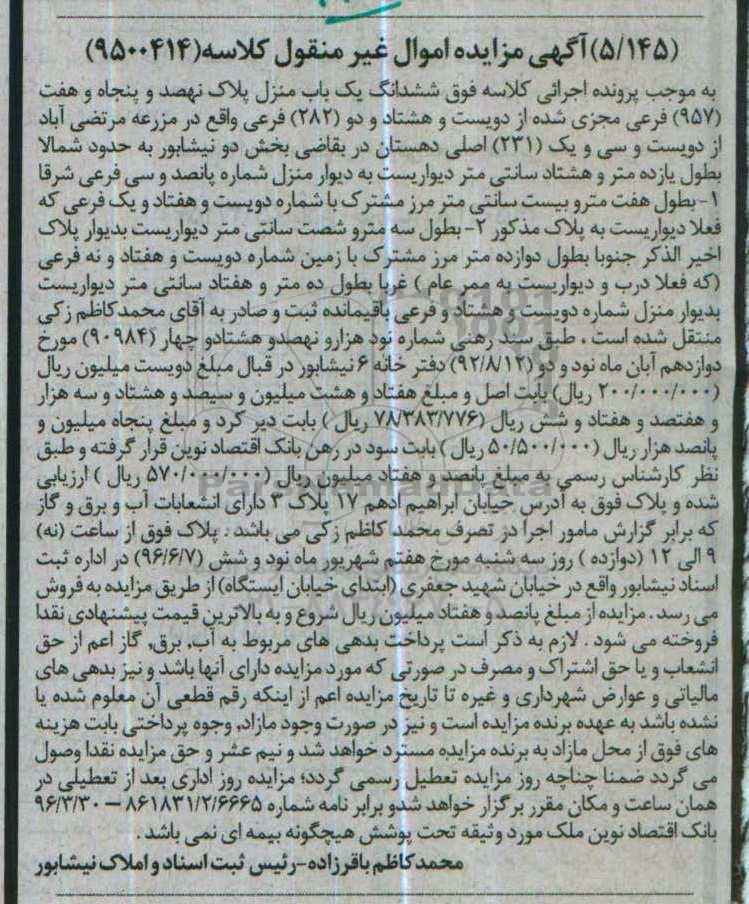 (۵/۱۴۵)آگهی مزایده اموال غیر منقول کلاسه(۹۵۰۰۴۱۴)
به موجب پرونده اجرائی کلاسه فوق ششدانگ یک باب منزل پلاک نهصد و پنجاه و هفت
(۹۵۷) فرعی مجزی شده از دویست و هشتاد و دو (۲۸۲) فرعی واقع در مزرعه مرتضی آباد
از دویست و سی و یک (۲۳۱) اصلی دهستان در بقاضی بخش دو نیشابور به حدود شمالا
بطول یازده متر و هشتاد سانتی متر دیواریست به دیوار منزل شماره پانصد و سی فرعی شرقا
۱-بطول هفت مترو بیست سانتی متر مرز مشترک با شماره دویست و هفتاد و یک فرعی که
فعلا دیواریست به پلاک مذکور ۲- بطول سه مترو شصت سانتی متر دیواریست بدیوار پلاک
اخیر الذکر جنوبا بطول دوازده متر مرز مشترک با زمین شماره دویست و هفتاد و نه فرعی
(که فعلا درب و دیواریست به ممر عام ) غربا بطول ده متر و هفتاد سانتی متر دیواریست
بدیوار منزل شماره دویست و هشتاد و فرعی باقیمانده ثبت و صادر به آقای محمدکاظم زکی
منتقل شده است . طبق سند رهنی شماره نود هزارو نهصدو هشتادو چهار (۹۰۹۸۴) مورخ
دوازدهم آبان ماه نود و دو (۹۲/۸/۱۲) دفتر خانه ۶ نیشابور در قبال مبلغ دویست میلیون ریال
(۲۰۰/۰۰۰/۰۰۰ ریال) بابت اصل و مبلغ هفتاد و هشت میلیون و سیصد و هشتاد و سه هزار
و هفتصد و هفتاد و شش ریال (۷۸/۳۸۳/۷۷۶ ریال ) بابت دیر کرد و مبلغ پنجاه میلیون و
پانصد هزار ریال (۵۰/۵۰۰/۰۰۰ ریال ) بابت سود در رهن بانک اقتصاد نوین قرار گرفته و طبق
نظر کارشناس رسمی به مبلغ پانصد و هفتاد میلیون ریال (۵۷۰/۰۰۰/۰۰۰ ریال ) ارزیابی
شده و پلاک فوق به آدرس خیابان ابراهیم ادهم ۱۷ پلاک ۳ دارای انشعابات آب و برق و گاز
که برابر گزارش مامور اجرا در تصرف محمد کاظم زکی می باشد . پلاک فوق از ساعت (نه)
۹ الی ۱۲ (دوازده ) روز سه شنبه مورخ هفتم شهریور ماه نود و شش (۹۶/۶/۷) در اداره ثبت
اسناد نیشابور واقع در خیابان شهید جعفری (ابتدای خیابان ایستگاه) از طریق مزایده به فروش
می رسد . مزایده از مبلغ پانصد و هفتاد میلیون ریال شروع و به بالاترین قیمت پیشنهادی نقدا
فروخته می شود . لازم به ذکر است پرداخت بدهی های مربوط به آب, برق, گاز اعم از حق
انشعاب و یا حق اشتراک و مصرف در صورتی که مورد مزایده دارای آنها باشد و نیز بدهی های
مالیاتی و عوارض شهرداری و غیره تا تاریخ مزایده اعم از اینکه رقم قطعی آن معلوم شده یا
نشده باشد به عهده برنده مزایده است و نیز در صورت وجود مازاد, وجوه پرداختی بابت هزینه
های فوق از محل مازاد به برنده مزایده مسترد خواهد شد و نیم عشر و حق مزایده نقدا وصول
می گردد ضمنا چناچه روز مزایده تعطیل رسمی گردد؛ مزایده روز اداری بعد از تعطیلی در
همان ساعت و مکان مقرر برگزار خواهد شدو برابر نامه شماره ۸۶۱۸۳۱/۲/۶۶۶۵ – ۹۶/۳/۳۰
بانک اقتصاد نوین ملک مورد وثیقه تحت پوشش هیچگونه بیمه ای نمی باشد .
محمدکاظم باقرزاده-رئیس ثبت اسناد و املاک نیشابور
ParsNamadData